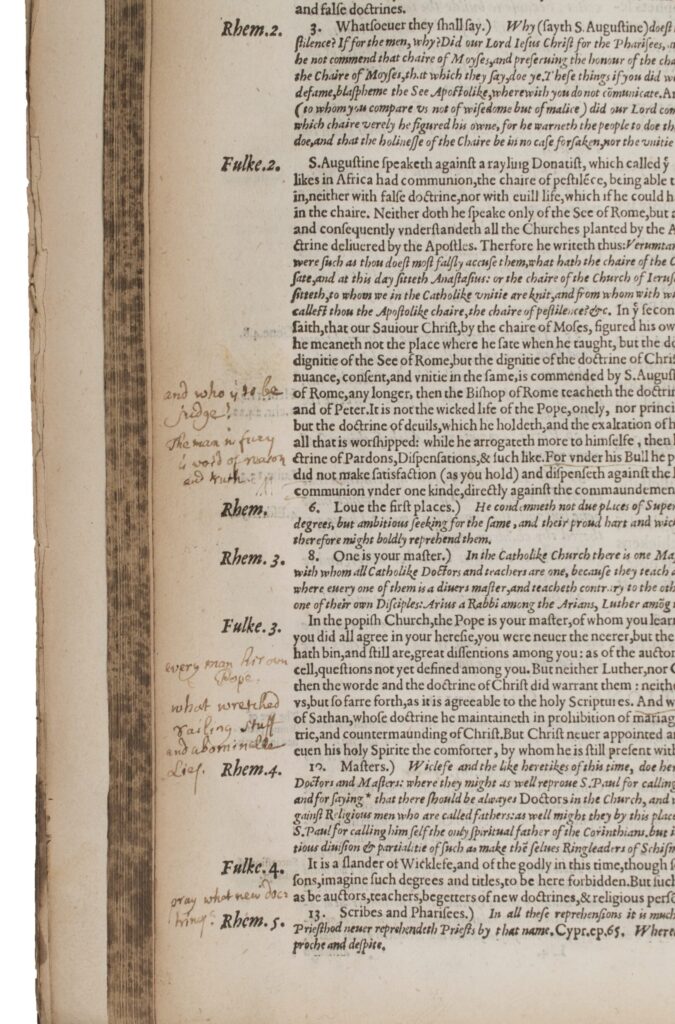 and false doctrines.
Rhem.2. 3. Whatsoeuer they shall say.) Why (sayth S. Augustine) doest
stilence? If for the men, why? Did our Lord Iesus Christ for the Pharisees,
he not commend that chaire of Moyses, and preseruing the honour of the cha
the Chaire of Moyses, that which they say, doe ye. These things if you did w
defame, blaspheme the See Apostolike, wherewith you do not cōmunicate. A
(to whom you compare vs not of wisedome but of malice) did our Lord com
which chaire verely he figured his owne, for he warneth the people to doe th
doe, and that the holinesse of the Chaire be in no case forsaken, nor the vnitie
Fulke.2. S. Augustine speaketh against a rayling Donatist, which called ẏ
likes in Africa had communion, the chaire of pestilēce, being able t
in, neither with false doctrine, nor with euill life, which if he could h
in the chaire. Neither doth he speake only of the See of Rome, but a
and consequently vnderstandeth all the Churches planted by the A
ctrine deliuered by the Apostles. Therfore he writeth thus: Verumtam
were such as thou doest most falsly accuse them, what hath the chaire of the C
sate, and at this day sitteth Anastasius: or the chaire of the Church of Ierus
sitteth, to whom we in the Catholike vnitie are knit, and from whom with w
callest thou the Apostolike chaire, the chaire of pestilence? &c. In ẏ secon
saith, that our Sauiour Christ, by the chaire of Moses, figured his ow
he meaneth not the place where he sate when he taught, but the do
dignitie of the See of Rome, but the dignitie of the doctrine of Chris
and who ẏs to be nuance, consent, and vnitie in the same, is commended by S. August
judge? of Rome, any longer, then the Bishop of Rome teacheth the doctrin
and of Peter. It is not the wicked life of the Pope, onely, nor princi
The man in fury but the doctrine of deuils, which he holdeth, and the exaltation of h
is voId of reason all that is worshipped: while he arrogateth more to himselfe, then
and truth ctrine of Pardons, Dispensations, & such like. For vnder his Bull he p
did not make satisfaction (as you hold) and dispenseth against the
communion vnder one kinde, directly against the commaundemen
Rhem. 6. Loue the first places.) He condemneth not due places of Super
degrees, but ambitious seeking for the same, and their proud hart and wic
therefore might boldly reprehend them.
Rhem.3. 8. One is your master.) In the Catholike Church there is one Ma
with whom all Catholike Doctors and teachers are one, because they teach
where euery one of them is a diuers master, and teacheth contrary to the oth
one of their own Disciples: Arius a Rabbi among the Arians, Luther amōg
Fulke.3. In the popish Church, the Pope is your master, of whom you learn
you did all agree in your heresie, you were neuer the neerer, but the
hath bin, and still are, great dissentions among you: as of the auctor
every man his own cell, questions not yet defined among you. But neither Luther, nor C
Pope. then the worde and the doctrine of Christ did warrant them: neithe
vs, but so farre forth, as it is agreeable to the holy Scriptures. And w
what wretched of Sathan, whose doctrine he maintaineth in prohibition of mariag
railing stuff tric, and countermaunding of Christ. But Christ neuer appointed a
and abominable euen his holy Spirite the comforter, by whom he is still present with
Lies. Rhem.4. 10. Masters.) Wiclefe and the like heretikes of this time, doe her
Doctors and Masters: where they might as well reproue S. Paul for calling
and for saying * that there should be alwayes Doctors in the Church, and
gainst Religious men who are called fathers: as well might they by this place
S. Paul for calling him self the only spiritual father of the Corinthians, but i
tious diuision & partialitie of such as make thē selues Ringleaders of Schism
Fulke.4. It is a slander of Wicklefe, and of the godly in this time, though s
sons, imagine such degrees and titles, to be here forbidden. But such
pray what new doc= as be auctors, teachers, begetters of new doctrines, & religious perso
trine? Rhem.5. 13. Scribes and Pharisees.) In all these reprehensions it is much
Priesthod neuer reprehendeth Priests by that name. Cypr. ep. 65. Where
proche and despite.